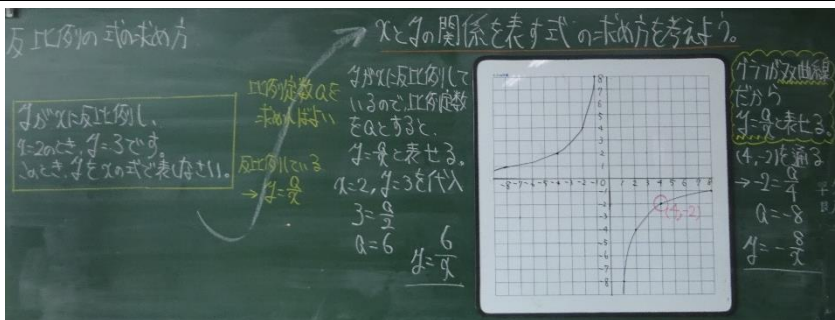 反比例の式の求め方
xとyの関係を表す式の求め方を考えよう。
yがxに反比例し、
x=2のとき、y=3です。
このとき、yをxの式で表しなさい。
比例定数aを
求めればよい
反比例している
→y=a/x
yがxに反比例して
いるので、比例定数
をaとすると、
y=a/xと表せる。
x=2, y=3を代入
3=a/2
a=6
y=6/x
8
7
6
5
4
3
2
1
-8 -7 -6 -5 -4 -3 -2 -1 0 1 2 3 4 5 6 7 8
-1
-2
-3
-4
-5
-6
-7
-8
(4,-2)
グラフが双曲線
だから
y=a/xと表せる。
(4,-2)を通る
→-2=a/4
a=-8
y=-8/x